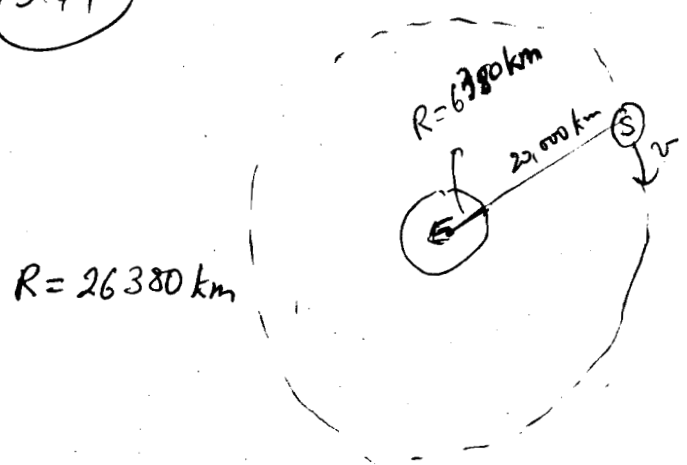 R=6380km
20,000 km
S
v
E
R= 26380 km